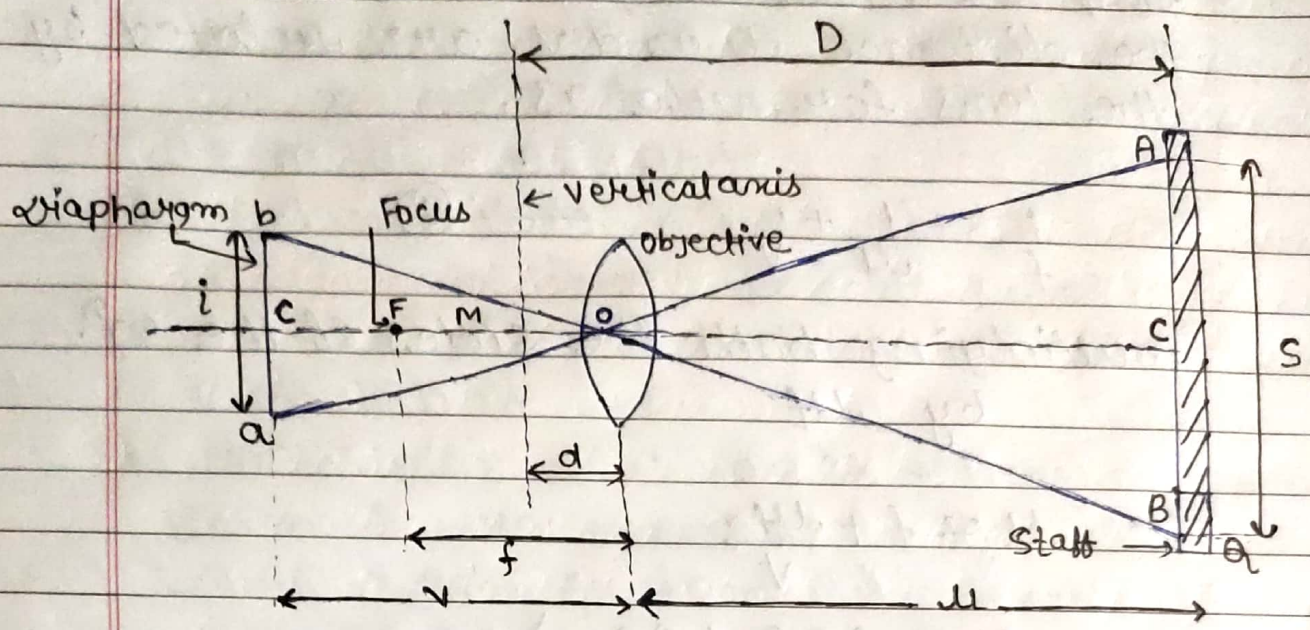 D
A
← Verticalaxis
Diaphargm b Focus
objective
i C F M O C S
a
d
B
f Staff → Q
V u